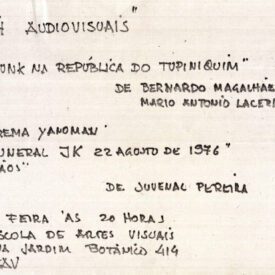 AUDIOVISUAIS"
UNK NA REPÚBLICA DO TUPINIQUIM"
DE BERNARDO MAGALHÃE
MARIO ANTONIO LACER
REMA YANOMAN
UNERAL JK 22 AGOSTO DE 1976"
ÃOS"
DE JUVENAL PEREIRA
FEIRA ÀS 20 HORAS
SCOLA DE ARTES VISUAIS
UA JARDIM BOTÂNICO 414
EAV